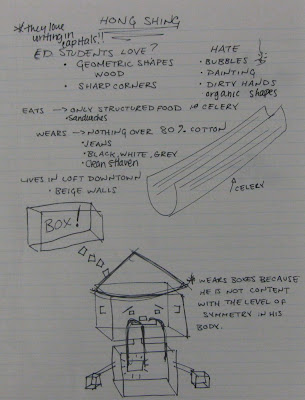 HONG SHING
* they love
writing in
capitals!!
ED. STUDENTS LOVE?
• GEOMETRIC SHAPES
WOOD
• SHARP CORNERS
HATE
• BUBBLES
• DAINTING
• DIRTY HANDS
organic shapes
EATS → ONLY STRUCTURED FOOD CELERY
• Sandwiches
WEARS → NOTHING OVER 80% COTTON
• JEANS
• BLACK, WHITE, GREY
LIVES IN LOFT DOWNTOWN
• BEIGE WALLS
CELERY
BOX!
* WEARS BOXES BECAUSE
HE IS NOT CONTENT
WITH THE LEVEL OF
SYMMETRY IN HIS
BODY.